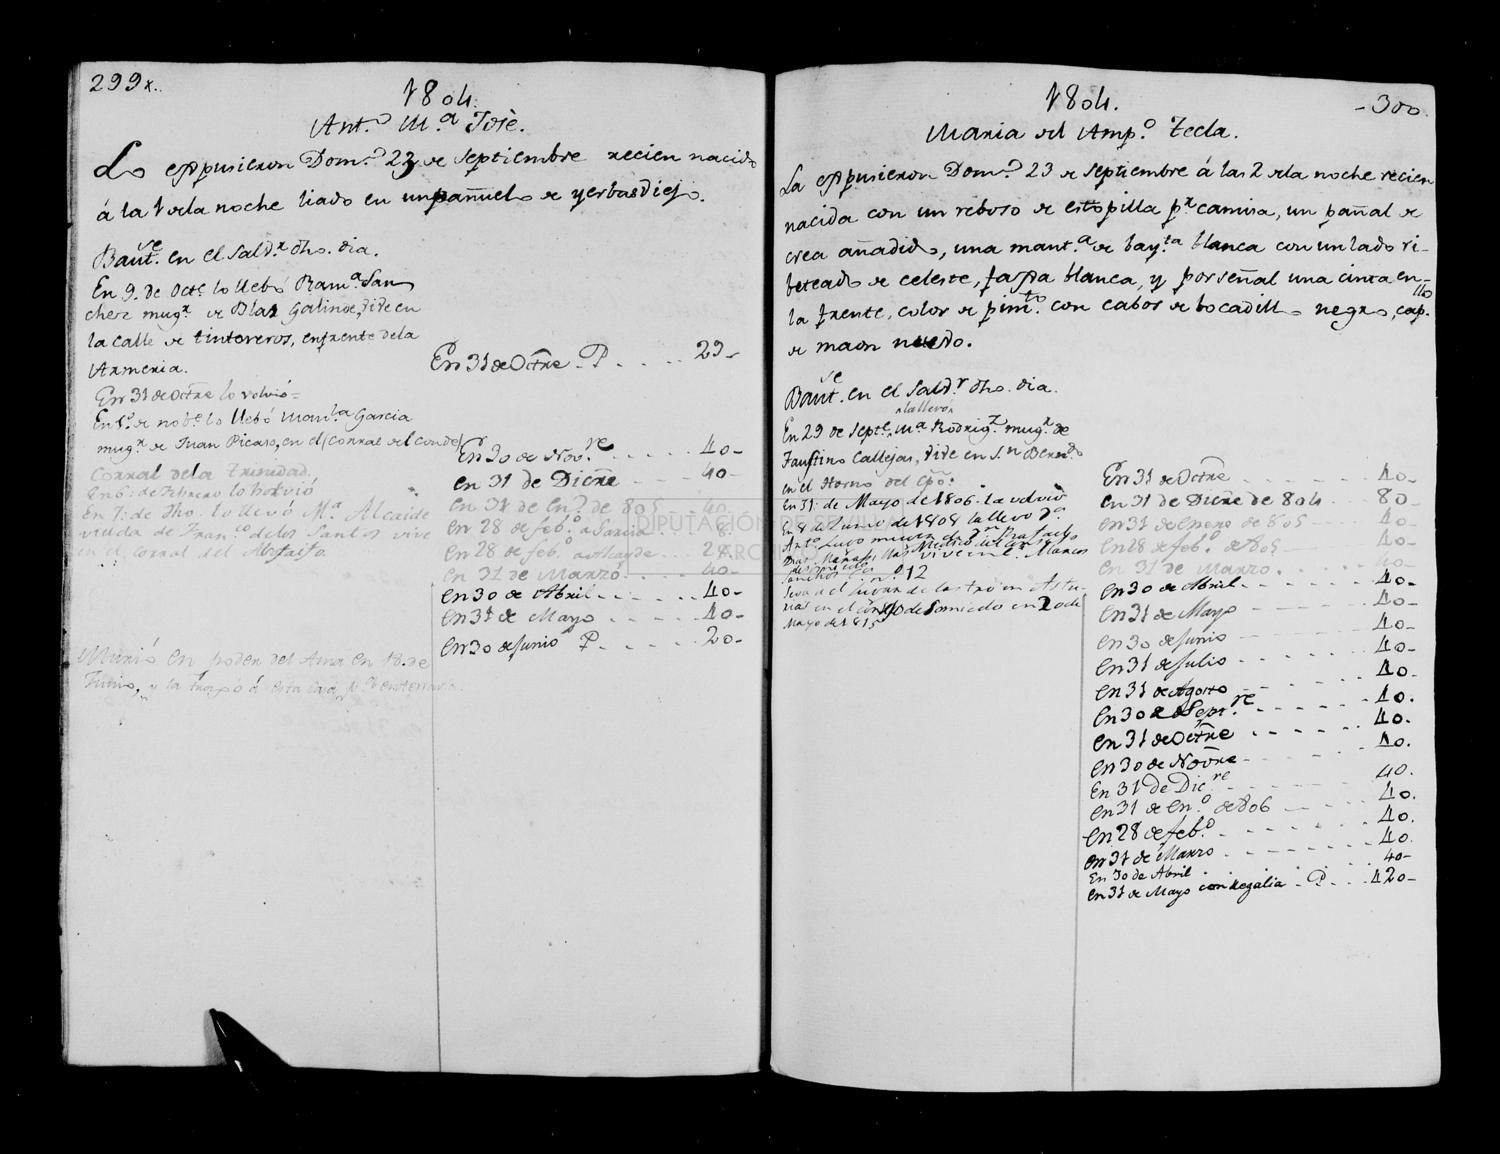 299x.
1804.
Ant.º M.ª Josè.
Lo expusieron Dom.º 23 de Septiembre recien nacido
á la 1 de la noche liado en un pañuelo de yerbas viejo.
Baut.se en el Salv.r dho. dia.
En 9. de Oct.e lo llebó Ram.ª San
chez mug.r de Blaz Galindo, vive en
la calle de tintoreros, enfrente dela
Armeria.
En 31 de Octre lo volvió =
En 1.º de nob.e lo llebó Man.la Garcia
mug.r de Juan Picaso, en el (Corral del Conde)
Corral dela trinidad.
En 6: de Febrero lo bolvió
En 7: de dho. lo llevó M.ª Alcaide
viuda de Fran.co delos Santos vive
en el Corral del
Murió en poder del Ama en 18. de
Junio, y la trajo á esta casa p.ª enterrarlo.
En 31 de Octre . P . . . . 29-
En 30 de Nov.re . . . . . 40-
en 31 de Dicre - - - - 40-
en 31 de En.º de 805 40-
en 28 de feb.º a Garcia . . 8.
en 28 de feb.º a Alcayde
en 31 de Marzo . . . . 40-
en 30 de Abril - . . . . . 40-
en 31 de Mayo . . . . . 40-
en 30 de Junio P . . . . . 20-
DIPUTACIÓN DE SEVILLA
1804.
- 300.
Maria del Amp.º Tecla.
La expusieron Dom.º 23 de Septiembre á las 2 dela noche recien
nacida con un reboso de estopilla p.r camisa, un pañal de
crea añadido, una mant.ª de bay.ta blanca con un lado ri-
beteado de celeste, faxa blanca, y por señal una cinta en-
la frente, color de pim.to con cabos de bocadillo negro, cap.llo
de maon nuevo.
Baut.se en el Salv.r dho. dia.
la llevó
En 29 de Septe. M.ª Rodrig.z mug.r de
Faustino Callejas, vive en S.n Bern.do
en el Horno del Cpo.
En 31: de Mayo de 1806. la volvió
En 8 de Junio de 1808 la llevó D.ª
Ant.ª Lugo muger de D.n Rafael
Sanchez n.º 12
en el de Somiedo en 20 de
Mayo de 1815
En 31 de Octre . . . . . 40-
en 31 de Dicre de 804 . . 80-
en 31 de enero de 805 - - 40-
en 28 de feb.º de 805 - - 40-
en 31 de Marzo . . . . 40-
en 30 de Abril - . . . . 40-
en 31 de Mayo - - - - 40-
en 30 de Junio - - - - 40-
en 31 de Julio . - - - 40-
en 31 de Agosto - - - 40-
en 30 de Sept.re . . . . 40.
en 31 de Octre . . . . 40-
en 30 de Novre - . . . 40.
en 31 de Dic.re - - - 40.
en 31 de En.º de 806 - - 40.
en 28 de feb.º - - - - 40.
en 31 de Marzo . - - - 40.
en 30 de Abril . . . . 40-
en 31 de Mayo con regalia . P . . . 120-